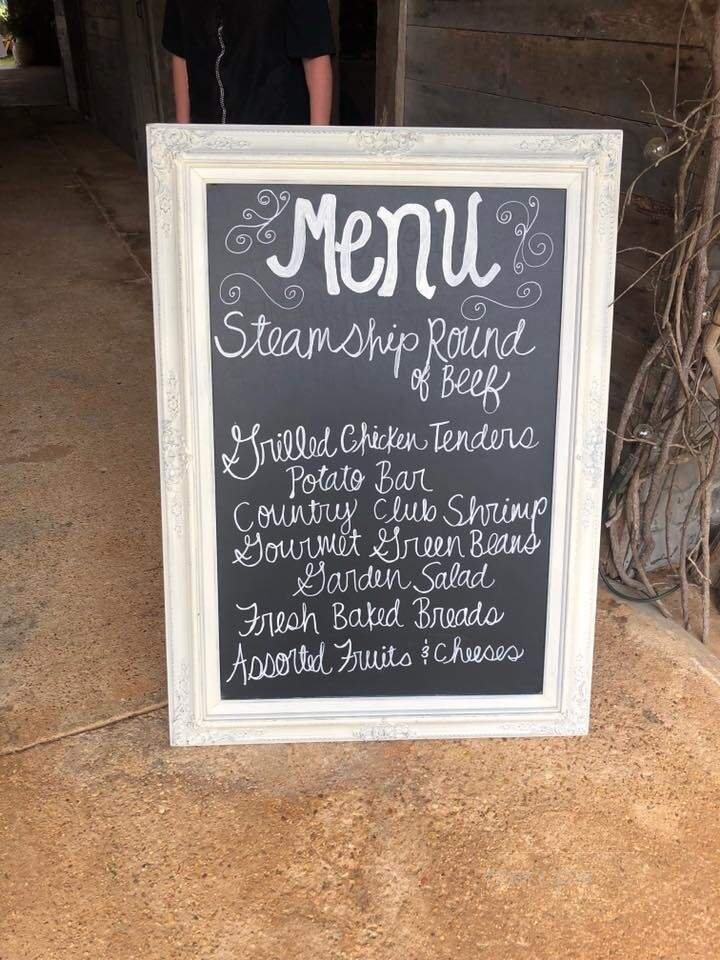 Menu
Steamship Round
of Beef
Grilled Chicken Tenders
Potato Bar
Country Club Shrimp
Gourmet Green Beans
Garden Salad
Fresh Baked Breads
Assorted Fruits & Cheeses